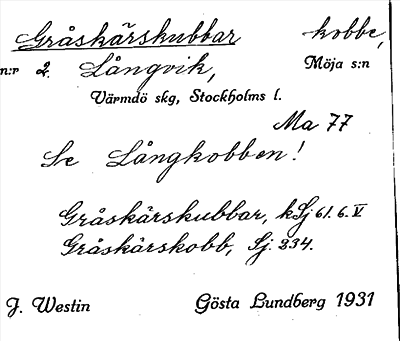 Gråskärskubbar kobbe,
n:r 2. Långvik, Möja s:n
Värmdö skg, Stockholms l.
Ma 77
Se Långkobben!
Gråskärskubbar, kSj 61.6.V.
Gråskärskobb, Sj. 234.
J. Westin Gösta Lundberg 1931